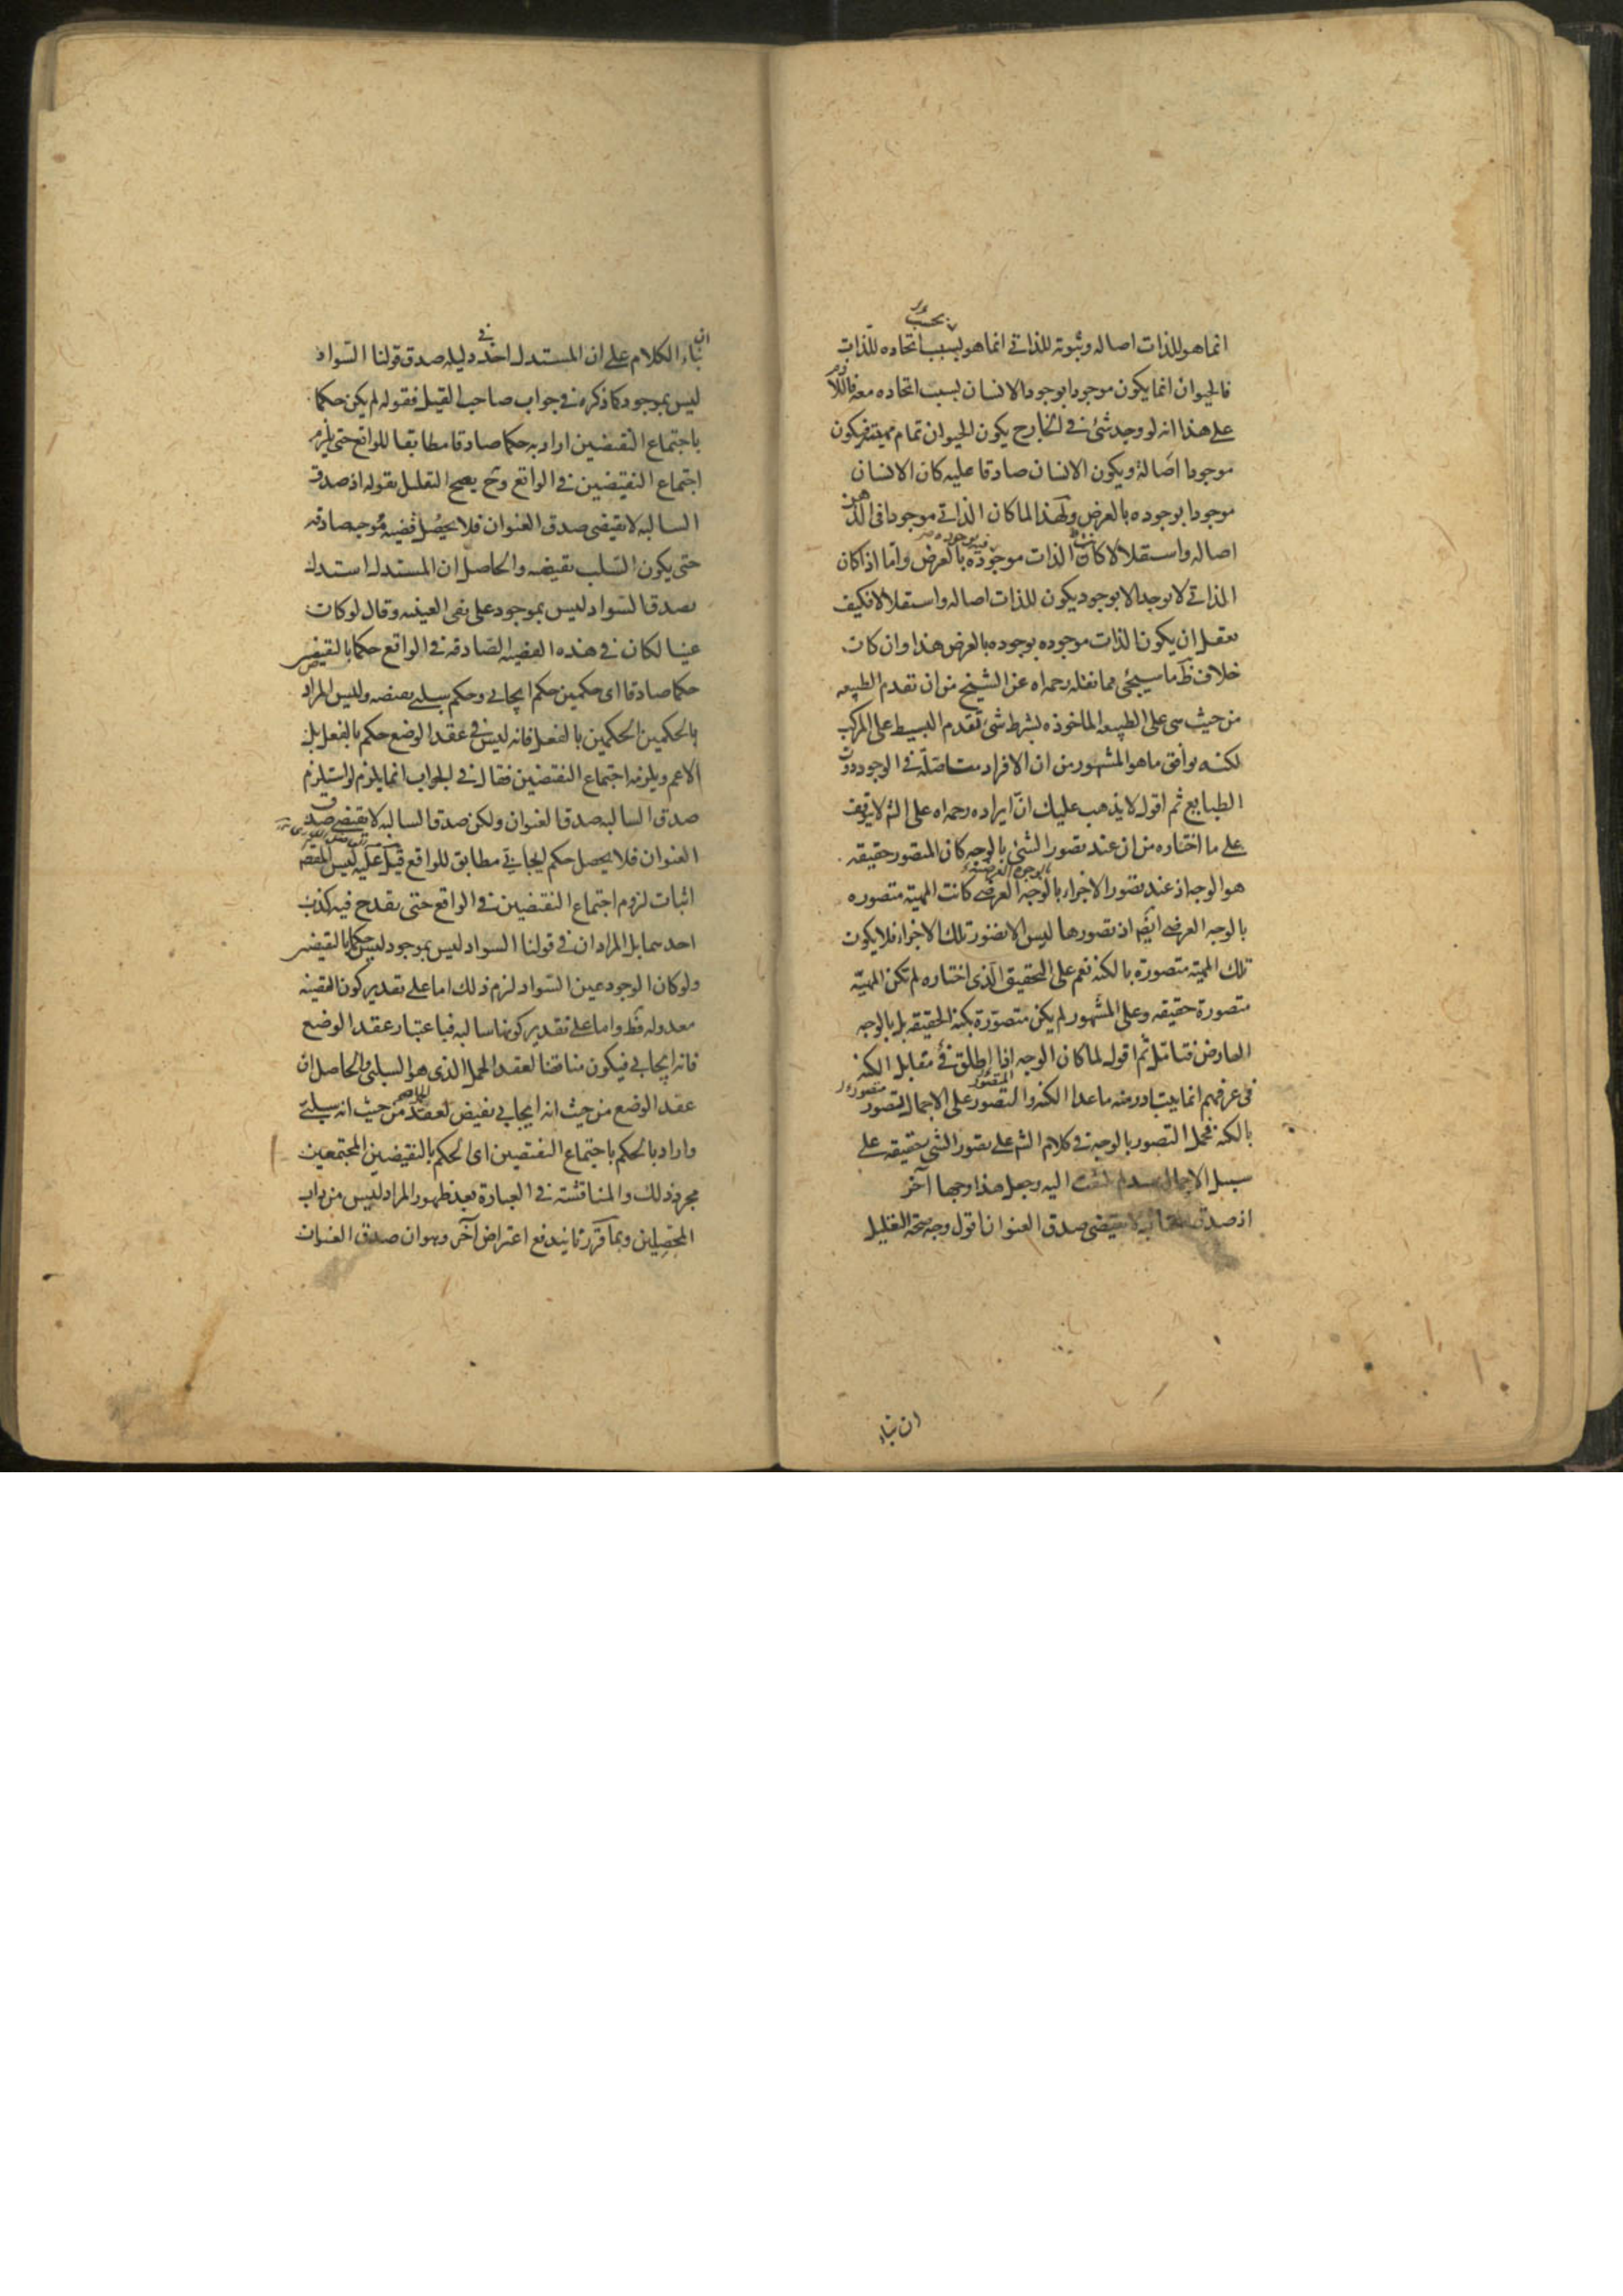 انما هو للذات اصاله وثبوته للذاتي انما هو بسبب اتحاده للذات
بحسب
فالحيوان انما يكون موجودا بوجود الانسان بسبب اتحاده معه فاللازم
على هذا انه لو وجد شئ في الخارج يكون الحيوان تمام مهيته فيكون
موجودا اصالة ويكون الانسان صادقا عليه كان الانسان
موجودا بوجوده بالعرض ولهذا لما كان الذاتي موجودا في الذهن
اصاله واستقلالا كان الذات موجوده بالعرض واما اذا كان
الذاتي لا يوجد الا بوجود يكون للذات اصاله واستقلالا فكيف
يعقل ان يكون الذات موجوده بوجوده بالعرض هذا وان كان
خلاف ظ ما سيجئ مما نقله رحمه اه عن الشيخ من ان تقدم الطبيعه
من حيث هي على الطبيعه الماخوذه بشرط شئ تقدم البسيط على المركب
لكنه يوافق ما هو المشهور من ان الافراد متاصلة في الوجود دون
الطبايع ثم اقول لا يذهب عليك ان ايراده رحمه اه على الش لا يتوقف
على ما اختاره من ان عند تصور الشئ بالوجه كان المتصور حقيقه
هو الوجه اذ عند تصور الاجزاء بالوجه العرضي كانت المهية متصوره
بالوجه العرضي ايضا اذ تصورها ليس الا تصور تلك الاجزاء فلا يكون
تلك المهية متصورة بالكنه نعم على التحقيق الذي اختاره لم تكن المهية
متصورة حقيقه وعلى المشهور لم يكن متصورة بكنه الحقيقه بل بالوجه
العارض فتامل ثم اقول لما كان الوجه اذا اطلق في مقابل الكنه
في عرفهم انما يتبادر منه ما عدا الكنه والتصور على الاجمال تصور
بالكنه فحمل التصور بالوجه في كلام الش على تصور الشئ بحقيقه على
سبيل الاجمال مما لم يلتفت اليه وجعل هذا وجها آخر
اذ صدق السالبه لا يقتضي صدق العنوان اقول وجه صحة التعليل
ان بناء
ان بناء الكلام على ان المستدل اخذ في دليله صدق قولنا السواد
ليس بموجود كما ذكره في جواب صاحب القيل فقوله لم يكن حكما
باجتماع النقيضين اراد به حكما صادقا مطابقا للواقع حتى يلزم
اجتماع النقيضين في الواقع وح يصح التعليل بقوله اذ صدق
السالبه لا يقتضي صدق العنوان فلا يحصل قضيه موجبه صادقه
حتى يكون السلب نقيضه والحاصل ان المستدل استدل
بصدق السواد ليس بموجود على نفي العينيه وقال لو كان
عينا لكان في هذه القضيه الصادقه في الواقع حكما بالنقيضين
حكما صادقا اي حكمين حكم ايجابي وحكم سلبي بنقيضه وليس المراد
بالحكمين الحكمين بالفعل فانه ليس في عقد الوضع حكم بالفعل بل
الاعم ويلزمه اجتماع النقيضين فقال في الجواب انما يلزم لو استلزم
صدق السالبه صدق العنوان ولكن صدق السالبه لا يقتضي صدق
العنوان فلا يحصل حكم ايجابي مطابق للواقع قيل عليه ليس المقصود
اثبات لزوم اجتماع النقيضين في الواقع حتى يقدح فيه كذب
احدهما بل المراد ان في قولنا السواد ليس بموجود ليس حكما بالنقيضين
ولو كان الوجود عين السواد لزم ذلك اما على تقدير كون القضيه
معدوله فظ واما على تقدير كونها سالبه فباعتبار عقد الوضع
فانه ايجابي فيكون مناقضا لعقد الحمل الذي هو السلبي والحاصل ان
عقد الوضع من حيث انه ايجابي نقيض لعقد الحمل من حيث انه سلبي
واراد بالحكم باجتماع النقيضين اي الحكم بالنقيضين المجتمعين
مجرد ذلك والمناقشة في العبارة بعد ظهور المراد ليس من داب
المحصلين وبما قررنا يندفع اعتراض آخر وهو ان صدق العنوان